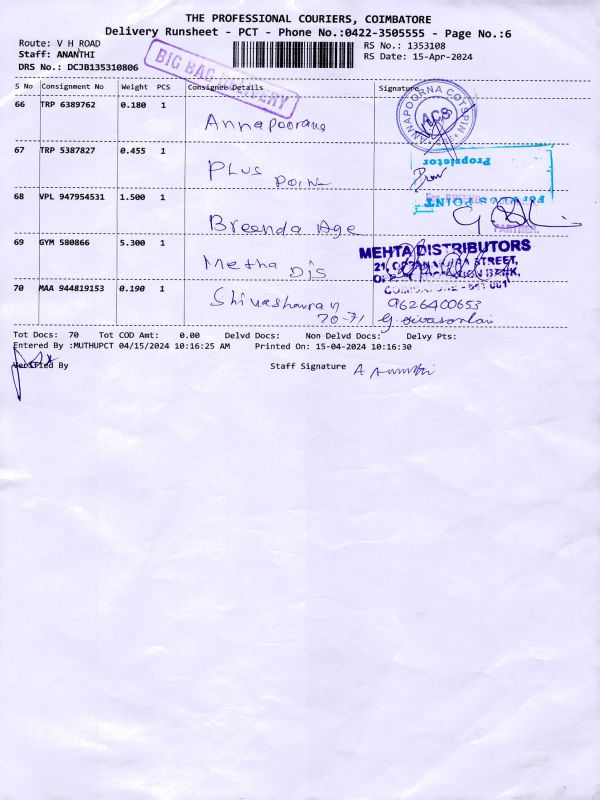 THE PROFESSIONAL COURIERS, COIMBATORE
Delivery Runsheet - PCT - Phone No.:0422-3505555 - Page No.:6
Route: V H ROAD
Staff: ANANTHI
DRS No.: DCJB135310806
RS No.: 1353108
RS Date: 15-Apr-2024
BIG BAG DELIVERY
S No Consignment No Weight PCS Consignee Details Signature
66 TRP 6389762 0.180 1
Annapoorana
ANNAPOORNA COTSPIN
ACS
67 TRP 5387827 0.455 1
PLUS POINT
Proprietor
For PLUS POINT
68 VPL 947954531 1.500 1
Breanda Age
69 GYM 580866 5.300 1
Metha Dis
MEHTA DISTRIBUTORS
70 MAA 944819153 0.190 1
Shivashankran
70-71
9626400653
Tot Docs: 70 Tot COD Amt: 0.00 Delvd Docs: Non Delvd Docs: Delvy Pts:
Entered By :MUTHUPCT 04/15/2024 10:16:25 AM Printed On: 15-04-2024 10:16:30
Verified By
Staff Signature